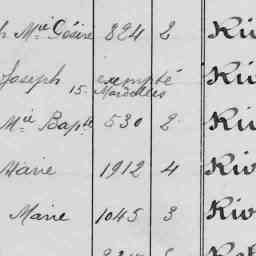 h Mie Désiré 824 2 Riv
Joseph exempté Riv
15. Mardelles
Mie Bapte 530 2 Riv
Marie 1912 4 Riv
Marie 1045 3 Riv